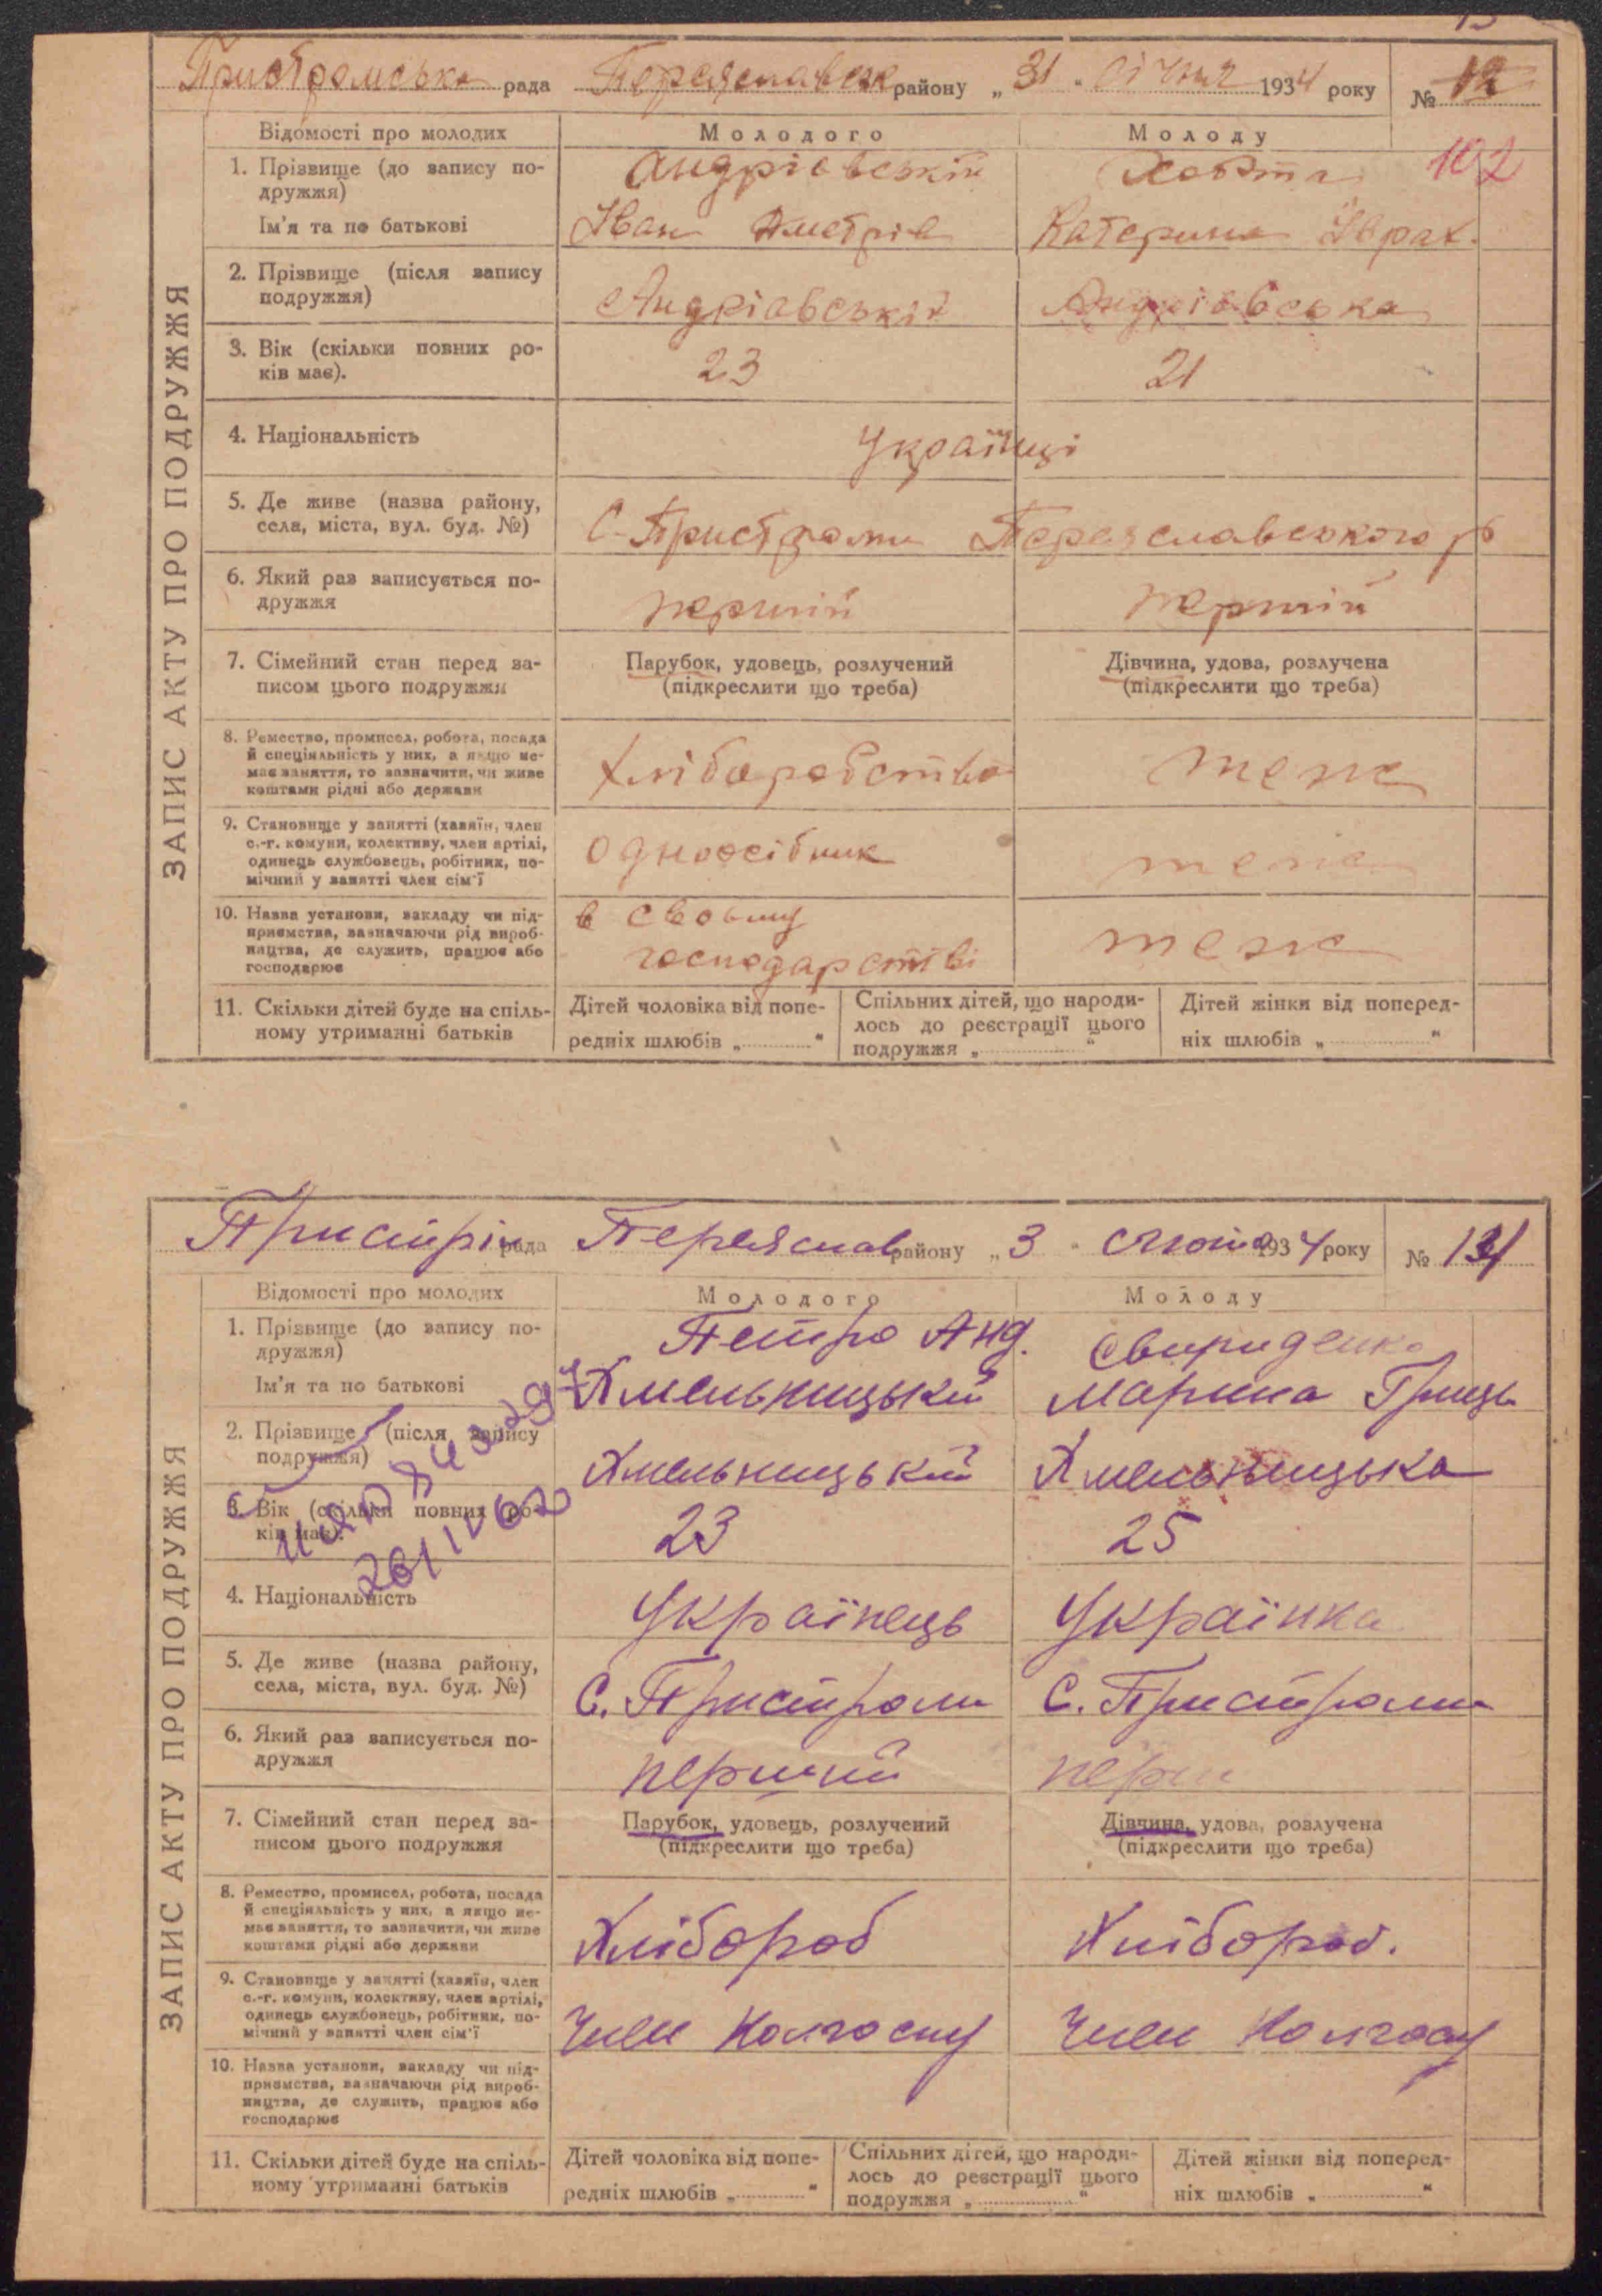 13
Пристромська рада Переяславськ району „31“ січня 1934 року № 12
102
ЗАПИС АКТУ ПРО ПОДРУЖЖЯ
Відомості про молодих
Молодого
Молоду
1. Прізвище (до запису подружжя)
Андріовській
Ім'я та по батькові
Іван Дметрів
Катерина
2. Прізвище (після запису подружжя)
Андріавській
Андріовська
3. Вік (скільки повних років має).
23
21
4. Національність
Українці
5. Де живе (назва району, села, міста, вул. буд. №)
С. Пристроми Переяславського р
6. Який раз записується подружжя
першій
першій
7. Сімейний стан перед записом цього подружжя
Парубок, удовець, розлучений
(підкреслити що треба)
Дівчина, удова, розлучена
(підкреслити що треба)
8. Ремество, промисел, робота, посада й спеціяльність у них, а якщо немає заняття, то зазначити, чи живе коштами рідні або держави
Хліборобство
теж
9. Становище у занятті (хазяїн, член с.-г. комуни, колективу, член артілі, одинець службовець, робітник, помічний у занятті член сім'ї
одноосібник
теж
10. Назва установи, закладу чи підприємства, зазначаючи рід виробництва, де служить, працює або господарює
в своьму
господарстві
теж
11. Скільки дітей буде на спільному утриманні батьків
Дітей чоловіка від попередніх шлюбів „ “
Спільних дітей, що народилось до реєстрації цього подружжя „ “
Дітей жінки від попередніх шлюбів „ “
Пристрім рада Переяслав району „3“ лютого 1934 року № 131
ЗАПИС АКТУ ПРО ПОДРУЖЖЯ
Відомості про молодих
Молодого
Молоду
1. Прізвище (до запису подружжя)
Петро Анд.
Свириденко
Ім'я та по батькові
Хмельницький
Марина Гриць
2. Прізвище (після запису подружжя)
Хмельницький
Хмельницька
3. Вік (скільки повних років має).
23
25
4. Національність
Українець
Українка
5. Де живе (назва району, села, міста, вул. буд. №)
С. Пристроми
С. Пристроми
6. Який раз записується подружжя
перший
перш
7. Сімейний стан перед записом цього подружжя
Парубок, удовець, розлучений
(підкреслити що треба)
Дівчина, удова, розлучена
(підкреслити що треба)
8. Ремество, промисел, робота, посада й спеціяльність у них, а якщо немає заняття, то зазначити, чи живе коштами рідні або держави
Хлібороб
Хлібороб.
9. Становище у занятті (хазяїн, член с.-г. комуни, колективу, член артілі, одинець службовець, робітник, помічний у занятті член сім'ї
Член Колгоспу
Член Колгоспу
10. Назва установи, закладу чи підприємства, зазначаючи рід виробництва, де служить, працює або господарює
11. Скільки дітей буде на спільному утриманні батьків
Дітей чоловіка від попередніх шлюбів „ “
Спільних дітей, що народилось до реєстрації цього подружжя „ “
Дітей жінки від попередніх шлюбів „ “